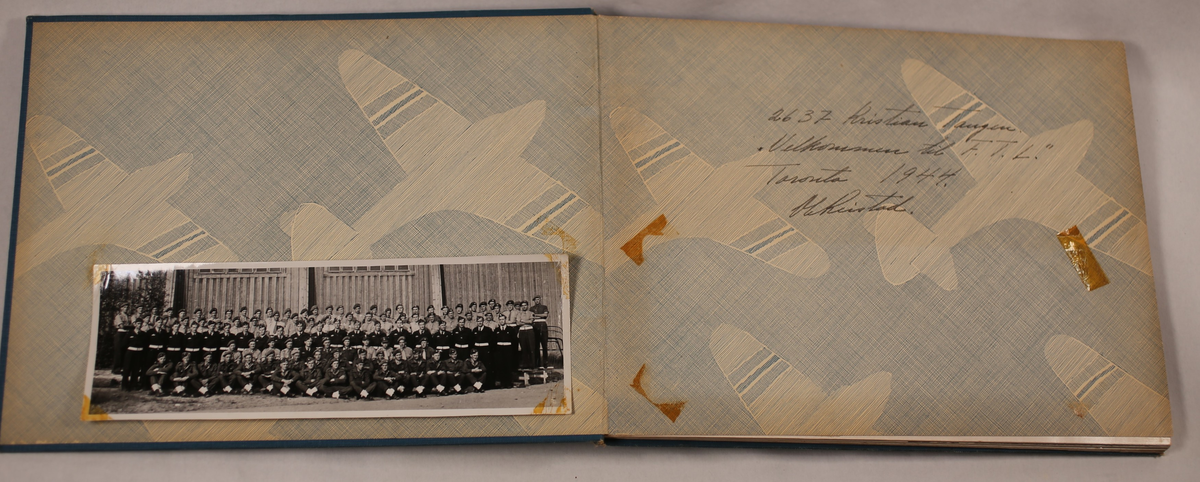 2637 Kristian Haugen
"Velkommen til F.T.L."
Toronto 1944.